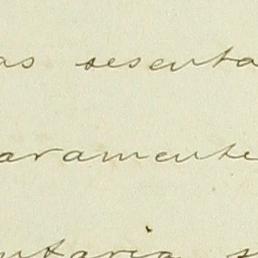 as sesenta
aramente
ntaria s